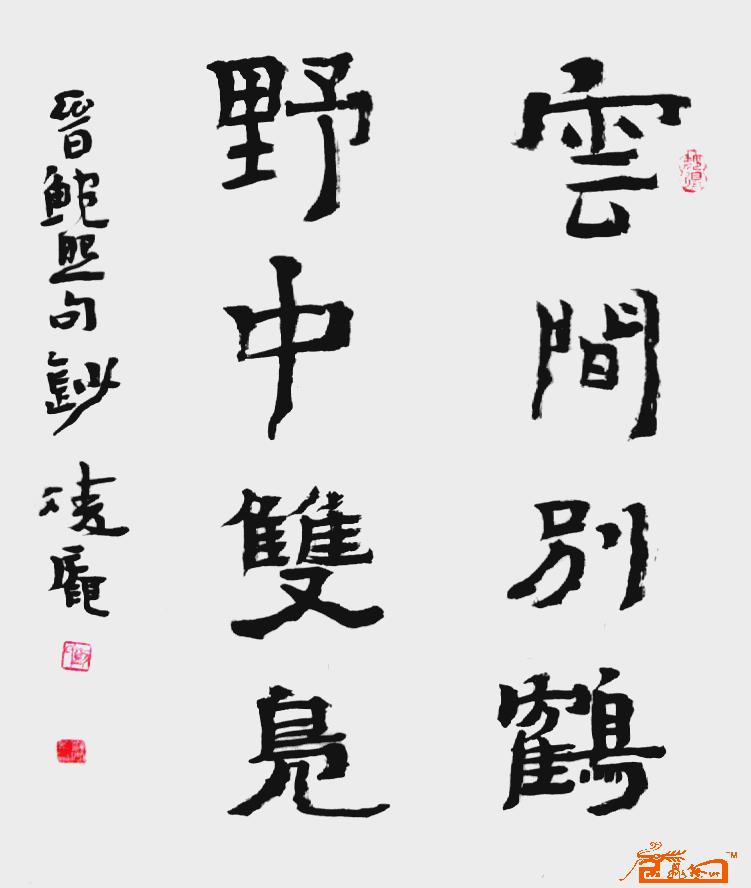 雲間別鶴
野中雙鳧
晉鮑照句鈔